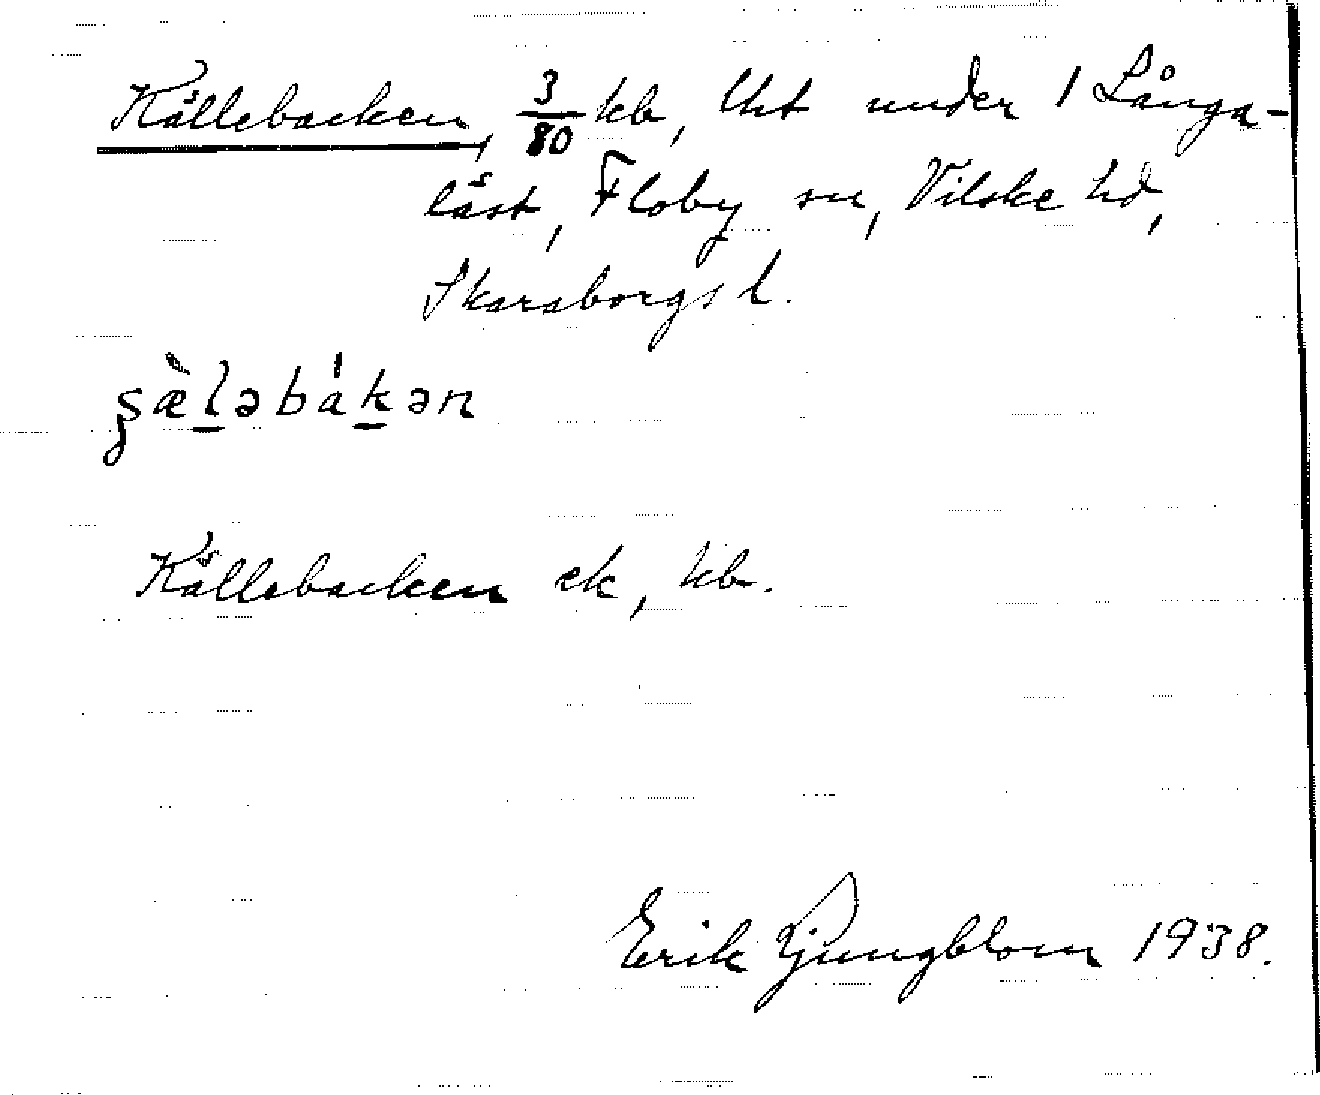 Källebacken, 3/80 kb, lht under 1 Långa-
låst, Floby sn, Vilske hd,
Skaraborgs l.
ʂæ̀l̠əbák̠ən
Källebacken ek, kb.
Erik Ljungblom 1938.